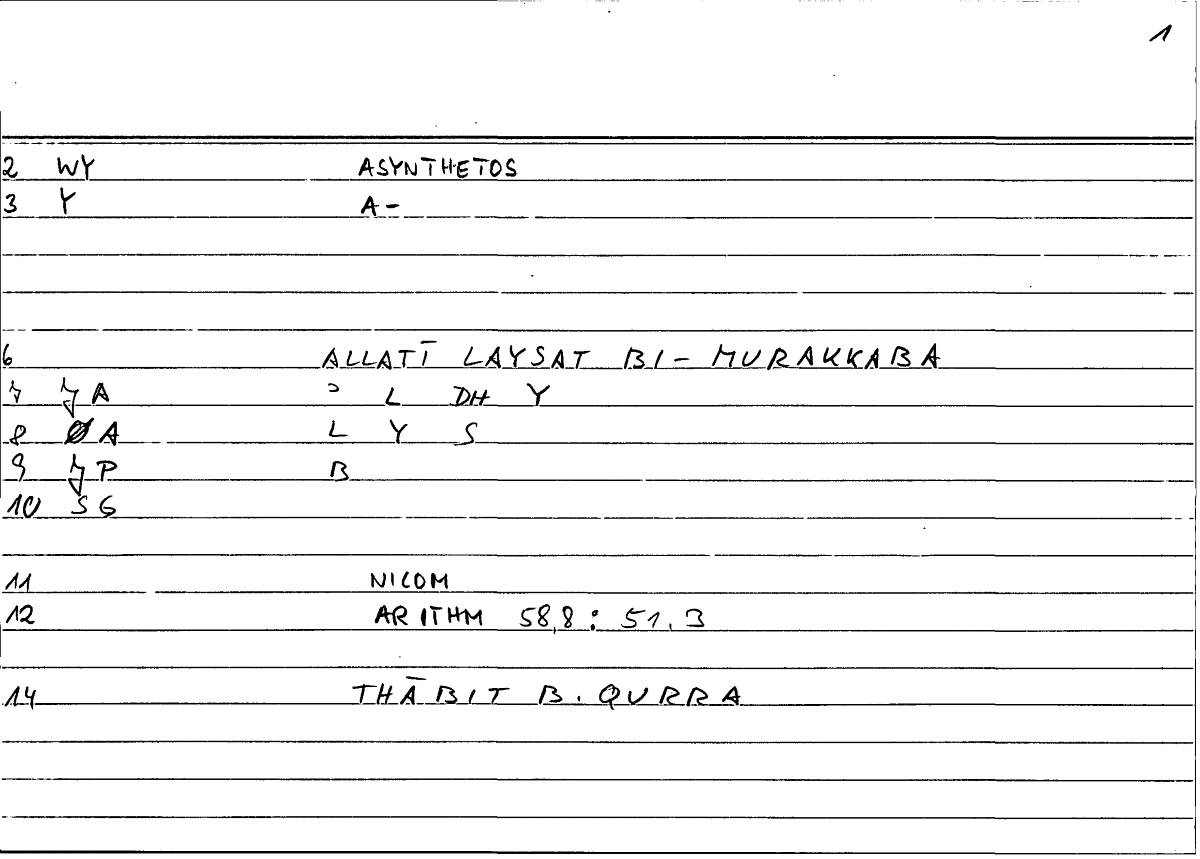 1
2 WY ASYNTHETOS
3 Y A-
6 ALLATĪ LAYSAT BI-MURAKKABA
7 A ʾ L DH Y
8 A L Y S
9 P B
10 SG
11 NICOM
12 ARITHM 58,8: 51.3
14 THĀBIT B. QURRA